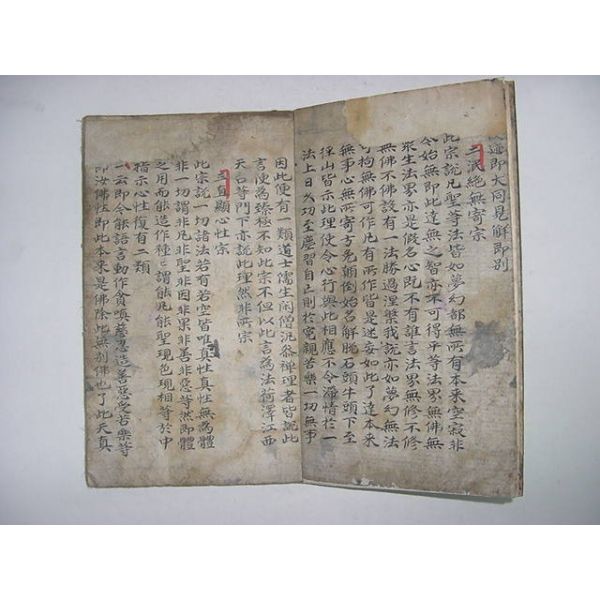 迹即大同見解即別
二泯絶無寄宗
此宗說凡聖等法皆如夢幻都無所有本来空寂非
今始無即此達無之智亦不可得平等法界無佛無
衆生法界亦是假名心既不有誰言法界無修不修
無佛不佛設有一法勝過涅槃我說亦如夢幻無法
可拘無佛可作凡有所作皆是迷妄如此了達本来
無事心無所寄方免顛倒始名解脫石頭牛頭下至
徑山皆示此理使令心行與此相應不令滯情於一
法上日久功至塵習自亡則於寃親苦樂一切無事
因此便有一類道士儒生閑僧汎叅禅理者皆說此
言便為臻極不知此宗不但以此言為法荷澤江西
天台等門下亦說此理然非所宗
三直顯心性宗
此宗說一切諸法若有若空皆唯真性真性無為體
非一切謂非凡非聖非因非果非善非惡等然即體
之用而能造作種種謂能凡能聖現色現相等於中
指示心性復有二類
一云即今能語言動作貪嗔慈忍造善惡受苦樂等
即汝佛性即此本来是佛除此無別佛也了此天真